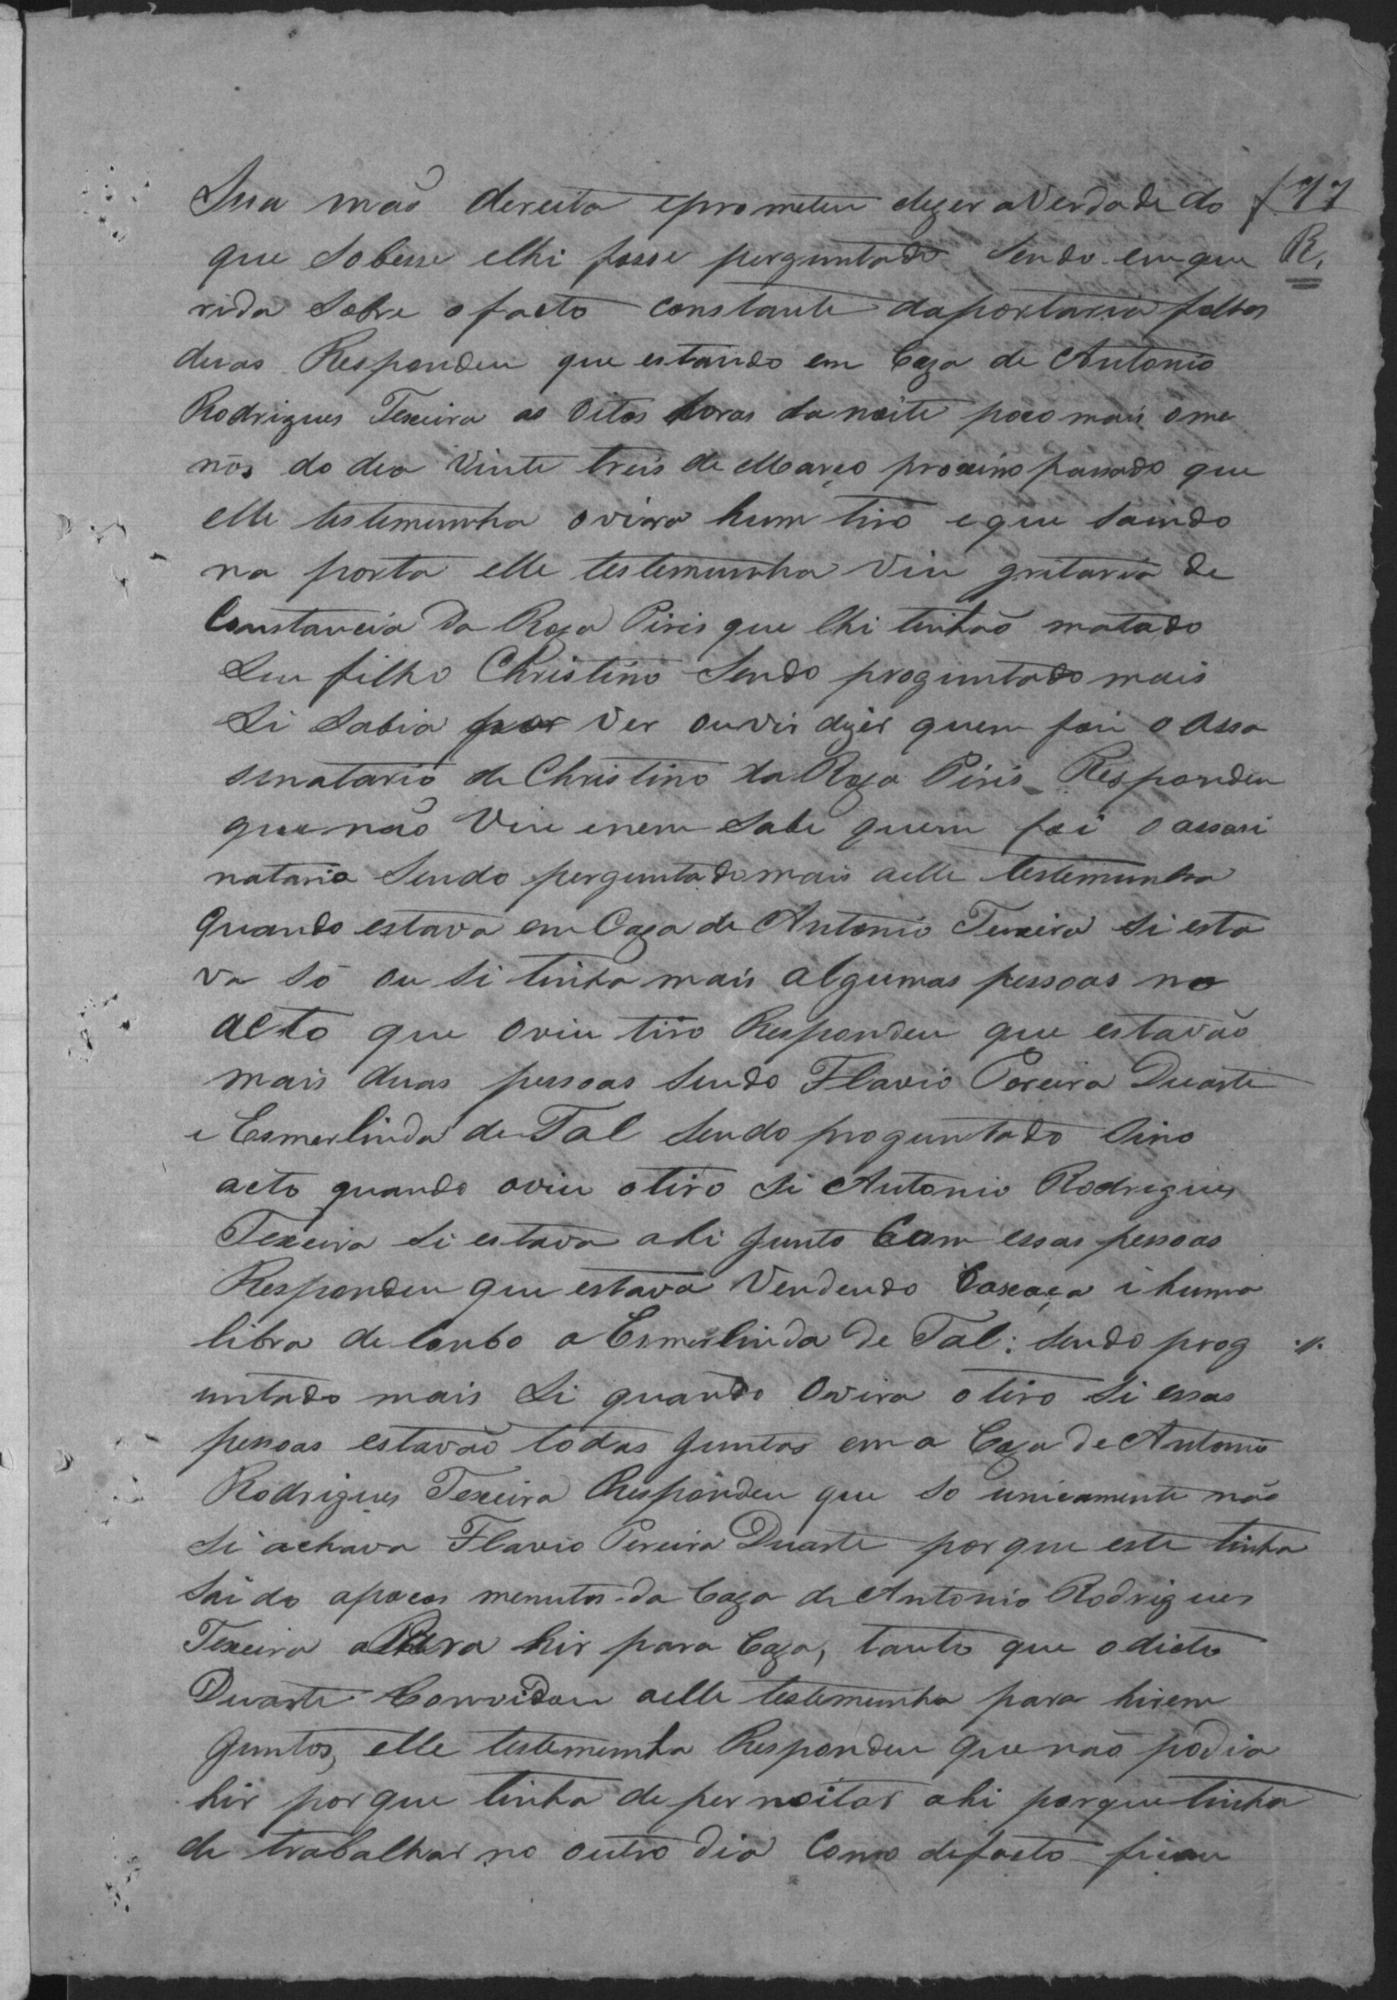 Sua mão dereita eprometeu dizer a Verdade do f 77
que Sobesse elhi fosse perguntado Sendo enque R.
rida Sobre ofacto constante daportaria folhas
duas Respondeu que estando em Caza de Antonio
Rodrigues Texeira as Oitos horas da noite poco mais ome
nos do dia Vinte treis de Março proximo passado que
elle testemunha ovira hum tiro eque saindo
na porta elle testemunha viu gritaria de
Constancia da Roza Piris que lhi tinhão matado
Seu filho Christino Sendo proguntado mais
Si Sabia por ver ouvir dizer quem foi o assa
sinatario de Christino da Roza Piris Respondeu
que não Viu enem Sabe quem foi o assasi
natario Sendo perguntado mais aelle testemunha
quando estava em Caza de Antonio Texeira Si esta
va Só ou Si tinha mais algumas pessoas no
acto que oviu tiro Respondeu que estavão
mais duas pessoas Sendo Flavio Pereira Duarte
e Esmerlinda de Tal Sendo proguntado Sino
acto quando oviu otiro Si Antonio Rodrigues
Texeira Si estava ahi Junto Com essas pessoas
Respondeu que estava Vendendo Caxaça i huma
libra de lonbo a Esmerlinda de Tal: Sendo prog
untado mais Si quando Ovira otiro Si essas
pessoas estavão todas Juntas em a Caza de Antonio
Rodrigues Texeira Respondeu que So unicamente não
Si achava Flavio Pereira Duarte por que este tinha
Saido apocos menutos da Caza de Antonio Rodrigues
Texeira para hir para Caza, tanto que odicto
Duarte Convidou aelle testemunha para hirem
Juntos, elle testemunha Respondeu que não podia
hir por que tinha de per noitar ahi porque tinha
de trabalhar no outro dia Como defacto ficou